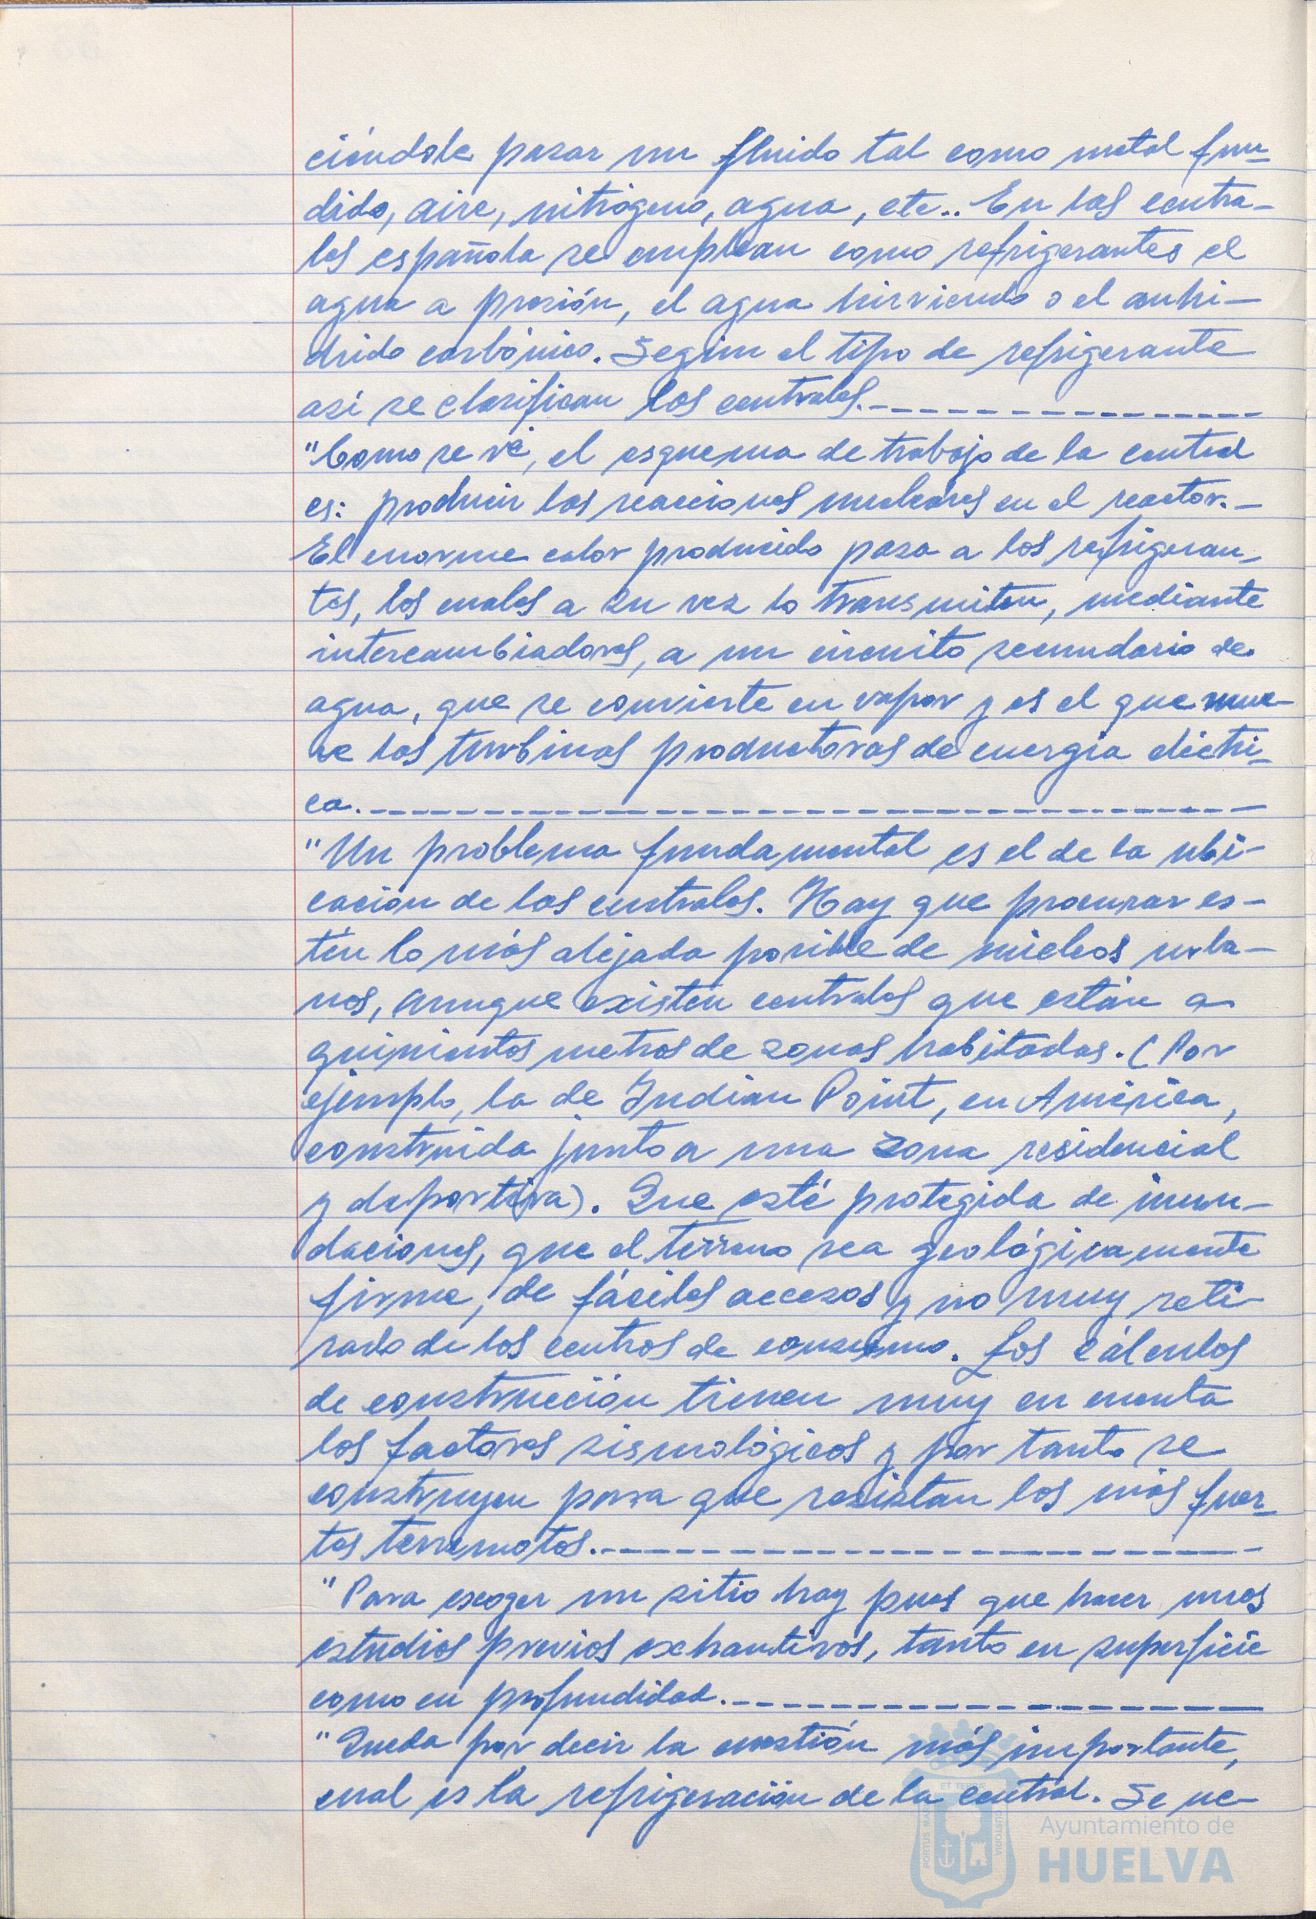 ciéndole pasar un fluido tal como metal fun-
dido, aire, nitrógeno, agua, etc.. En las centra-
les española se emplean como refrigerantes el
agua a presión, el agua hirviendo o el anhi-
drido carbónico. Según el tipo de refrigerante
asi se clasifican las centrales.
"Como se vé, el esquema de trabajo de la central
es: producir las reacciones nucleares en el reactor.-
El enorme calor producido pasa a los refrigeran-
tes, los cuales a su vez lo transmiten, mediante
intercambiadores, a un circuito secundario de
agua, que se convierte en vapor y es el que mue-
ve las turbinas productoras de energia eléctri-
ca.
"Un problema fundamental es el de la ubi-
cación de las centrales. Hay que procurar es-
tén lo más alejada posible de núcleos urba-
nos, aunque existen centrales que están a
quinientos metros de zonas habitadas. (Por
ejemplo, la de Indian Point, en América,
construida junto a una zona residencial
y deportiva). Que esté protegida de inun-
daciones, que el terreno sea geológicamente
firme, de fáciles accesos y no muy reti-
rado de los centros de consumo. Los cálculos
de construcción tienen muy en cuenta
los factores sismológicos y por tanto se
construyen para que resistan los más fuer-
tes terremotos.
"Para escoger un sitio hay pues que hacer unos
estudios previos exhautivos, tanto en superficie
como en profundidad.
"Queda por decir la cuestión más importante,
cual es la refrigeración de la central. Se ne-
Ayuntamiento de
HUELVA